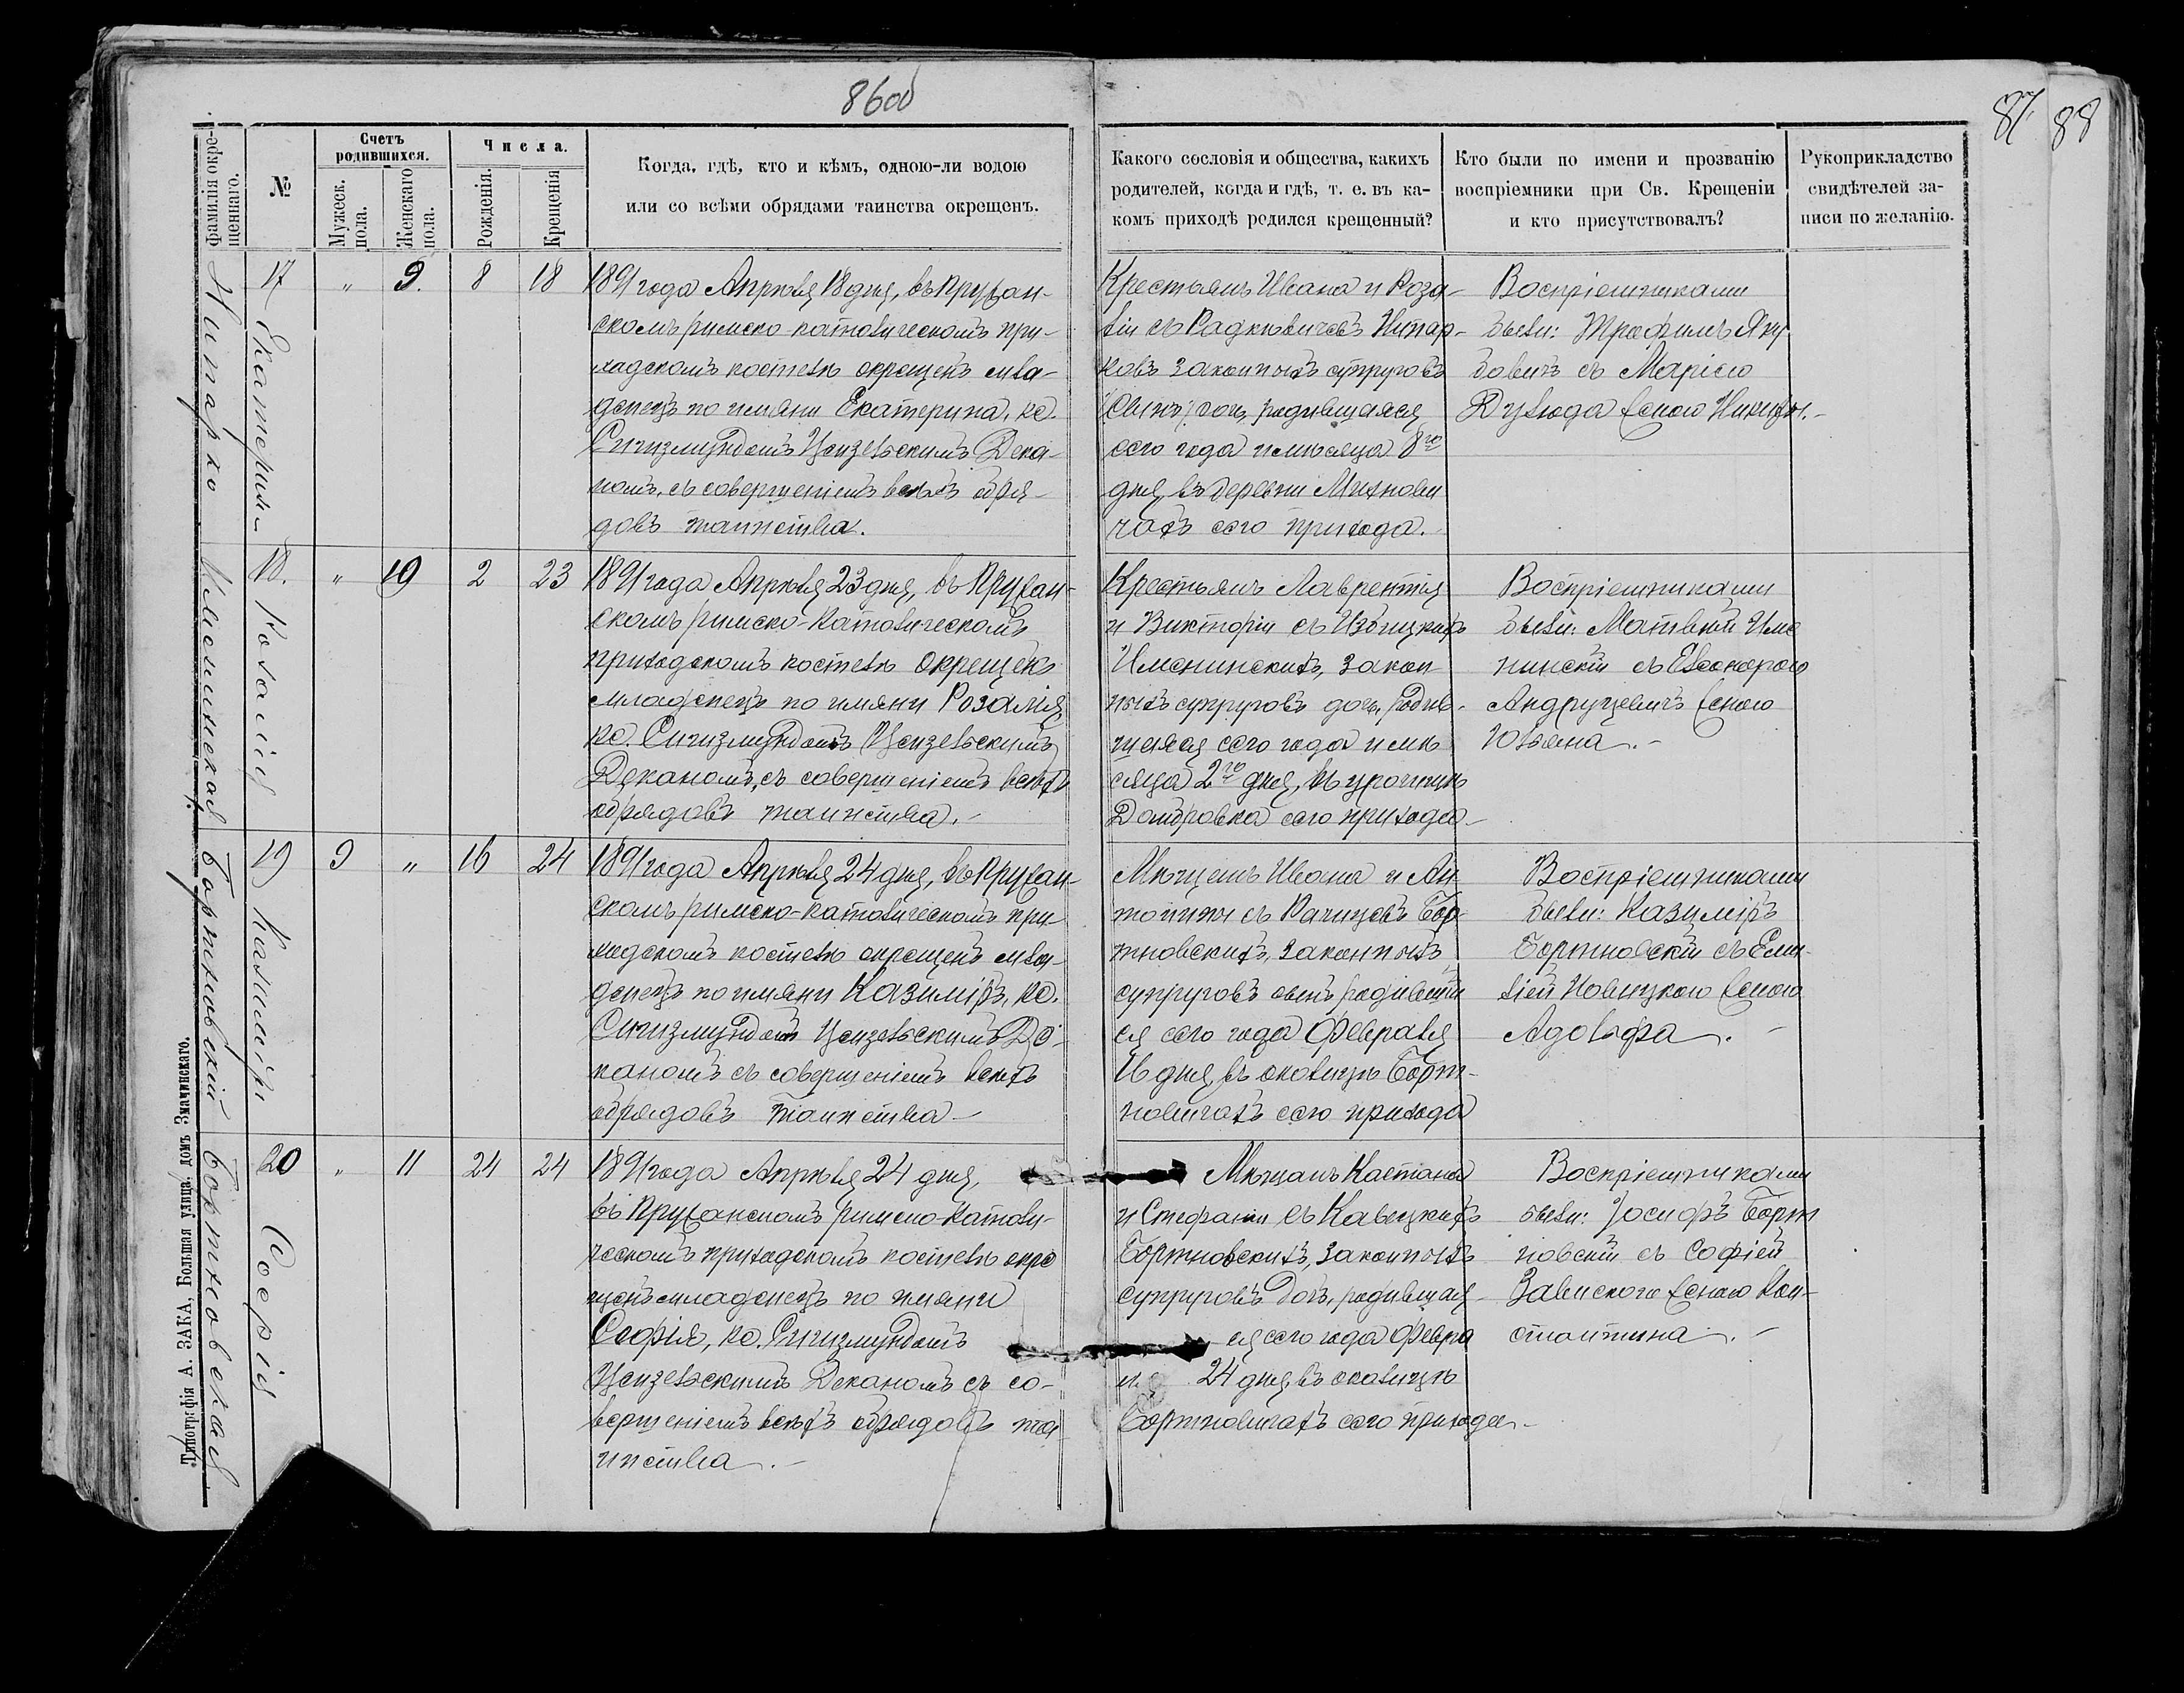 86об
87
88
Фамилія окрещеннаго.
№
Счетъ родившихся.
Мужеск. пола.
Женскаго пола.
Числа.
Рожденія.
Крещенія
Когда, гдѣ, кто и кѣмъ, одною-ли водою
или со всѣми обрядами таинства окрещенъ.
Какого сословія и общества, какихъ
родителей, когда и гдѣ, т. е. въ ка-
комъ приходѣ родился крещенный?
Кто были по имени и прозванію
воспріемники при Св. Крещеніи
и кто присутствовалъ?
Рукоприкладство
свидѣтелей за-
писи по желанію.
Нитарко
17 Екатерина
" 9. 8 18
1891 года Апрѣля 18 дня, въ Пружан-
скомъ римско-католическомъ при-
ходскомъ костелѣ окрещенъ мла-
денецъ по имяни Екатерина, кс.
Сигизмундомъ Цензельскимъ Дека-
номъ, съ совершеніемъ всѣхъ обря-
довъ таинства.
Крестьянъ Ивана и Роза-
ліи съ Радкѣвичовъ Нитар-
ковъ законныхъ супруговъ
(сынъ) дочь, родившаяся
сего года и мѣсяца 8го
дня въ деревни Михнови-
чахъ сего прихода.
Воспріемниками
были: Трофимъ Яку-
бовичъ съ Маріею
Дулюда женою Никиты.-
Именинская
18. Розалія
" 10 2 23
1891 года Апрѣля 23 дня, въ Пружан-
скомъ римско-католическомъ
приходскомъ костелѣ окрещенъ
младенецъ по имяни Розалія,
кс. Сигизмундомъ Цензельскимъ
Деканомъ, съ совершеніемъ всѣхъ
обрядовъ таинства.-
Крестьянъ Лаврентія
и Викторіи съ Избицкихъ
Именинскихъ, закон-
ныхъ супруговъ дочь, родив-
шаяся сего года и мѣ-
сяца 2го дня, въ урочищѣ
Домбровка сего прихода-
Воспріемниками
были: Матвѣй Име
нинскій съ Елеонорою
Андруцевичъ женою
Юльяна.-
Бортновскій
19 Казиміръ
9 " 16 24
1891 года Апрѣля 24 дня, въ Пружан-
скомъ римско-католическомъ при-
ходскомъ костелѣ окрещенъ мла-
денецъ по имяни Казиміръ, кс.
Сигизмундомъ Цензельскимъ Де-
каномъ съ совершеніемъ всѣхъ
обрядовъ таинства-
Мѣщанъ Ивана и Ан-
тонины съ Рачицовъ Бор-
тновскихъ, законныхъ
супруговъ сынъ, родившій
ся сего года Февраля
16 дня, въ околицѣ Борт-
новичахъ сего прихода
Воспріемниками
были: Казиміръ
Бортновскій съ Еми-
ліей Новицкою женою
Адольфа.-
Бортновская
20 Софія
" 11 24 24
1891 года Апрѣля 24 дня,
въ Пружанскомъ римско-католи-
ческомъ приходскомъ костелѣ окре
щенъ младенецъ по имяни
Софія, кс. Сигизмундомъ
Цензельскимъ Деканомъ съ со-
вершеніемъ всѣхъ обрядовъ та
инства.-
Мѣщанъ Каетана
и Стефаніи съ Кавецкихъ
Бортновскихъ, законныхъ
супруговъ дочь, родившая-
ся сего года Февра
24 дня, въ околицѣ
Бортновичахъ сего прихода-
Воспріемниками
были: Іосифъ Борт
новскій съ Софіей
женою Кон-
стантина.-
Типографія А. ЗАКА, Большая улица, домъ Значинскаго.